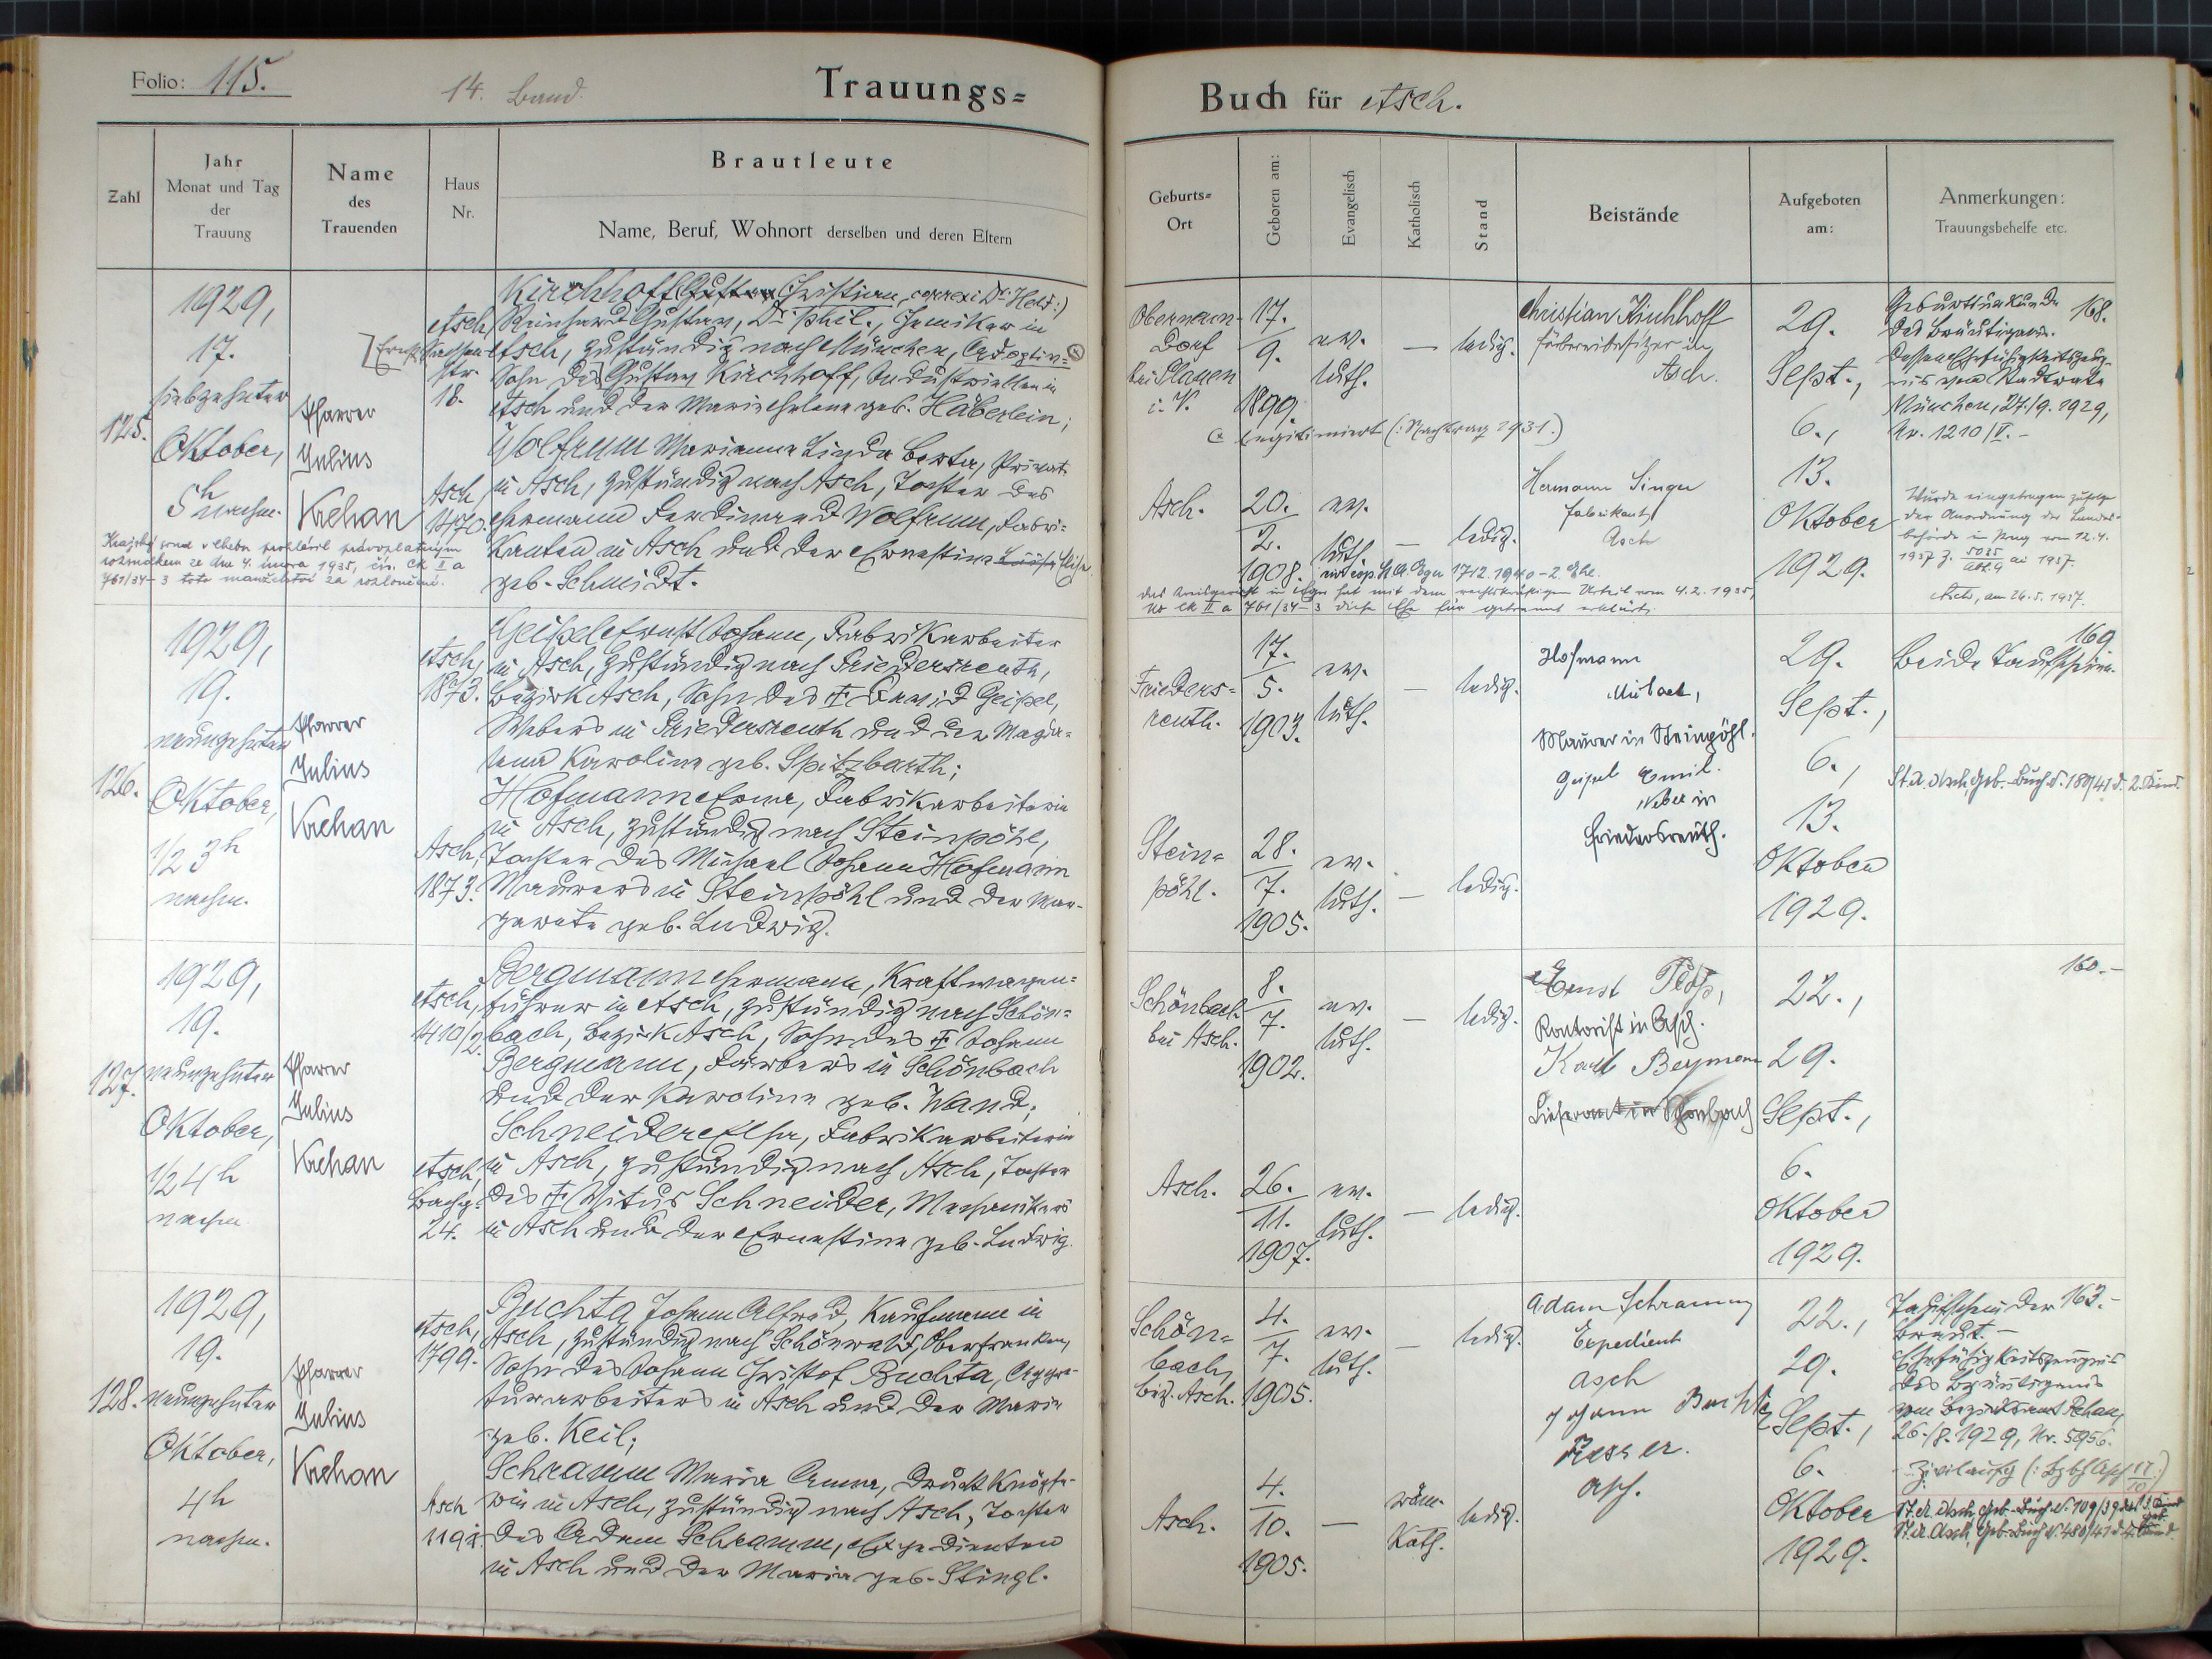 Folio: 115.
14. Band.
Trauungs=
Zahl
Jahr
Monat und Tag
der
Trauung
Name
des
Trauenden
Haus
Nr.
Brautleute
Name, Beruf, Wohnort derselben und deren Eltern
125.
1929,
17.
siebzehnter
Oktober,
5h nachm.
Pfarrer
Julius
Krehan
Asch,
18.
Kirchhoff Christian
Reinhard Gustav, Dr. phil., Chemiker in
Asch, zuständig nach München, Adoptiv=
Sohn des Gustav Kirchhoff, Industriellen in
Asch und der Marie Helene geb. Häberlein;
Asch
1470.
Wolfrum Marianne Linda Berta, Privat
in Asch, zuständig nach Asch, Tochter des
Hermann Ferdinand Wolfrum, Fabri=
kanten in Asch und der Ernestine
geb. Schmidt.
126.
1929,
19.
neunzehnter
Oktober,
1/2 3h
nachm.
Pfarrer
Julius
Krehan
Asch,
1873.
Geipel Ernst Johann, Fabrikarbeiter
in Asch, zuständig nach Friedersreuth,
Bezirk Asch, Sohn des † David Geipel,
Webers in Friedersreuth und der Magda=
lena Karoline geb. Spitzbarth;
Asch,
1873.
Hofmann Erna, Fabrikarbeiterin
in Asch, zuständig nach Steinpöhl,
Tochter des Michael Johann Hofmann
Maurers in Steinpöhl und der Mar=
garete geb. Ludwig.
127.
1929,
19.
neunzehnter
Oktober,
1/2 4h
nachm.
Pfarrer
Julius
Krehan
Asch,
410/2.
Bergmann Hermann, Kraftwagen=
führer in Asch, zuständig nach Schön=
bach, Bezirk Asch, Sohn des † Johann
Bergmann, Färbers in Schönbach
und der Karoline geb. Wand;
Asch,
24.
Schneider Elsa, Fabrikarbeiterin
in Asch, zuständig nach Asch, Tochter
des † Vitus Schneider, Mechanikers
in Asch und der Ernestine geb. Ludwig.
128.
1929,
19.
neunzehnter
Oktober,
4h
nachm.
Pfarrer
Julius
Krehan
Asch,
1799.
Buchta Johann Alfred, Kaufmann in
Asch, zuständig nach Schönwald, Oberfranken,
Sohn des Johann Christof Buchta, Appre=
turarbeiters in Asch und der Maria
geb. Keil;
Asch
Schramm Maria Anna,
in Asch, zuständig nach Asch, Tochter
des Adam Schramm, Expedienten
in Asch und der Maria geb. Stingl.
Buch für Asch.
Geburts=
Ort
Geboren am:
Evangelisch
Katholisch
Stand
Beistände
Aufgeboten
am:
Anmerkungen:
Trauungsbehelfe etc.
bei Plauen
i. V.
17.
9.
1899.
ev.
luth.
—
ledig.
Christian Kirchhoff
Färbereibesitzer in
Asch.
29.
Sept.,
6.,
13.
Oktober
1929.
Geburtsurkunde 168.
des Bräutigams.
München, 27./9. 1929,
Nr. 1210/II. -
legitimiert (: Nachtrag 1931.)
Asch.
20.
2.
1908.
ev.
luth.
—
ledig.
Hermann Singer
Fabrikant
Asch
Wurde eingetragen zufolge
der Anordnung der Landes=
behörde in Prag vom 12.4.
Asch, am 26.5.1937.
Das Kreisgericht in Eger hat mit dem rechtskräftigen Urteil vom 4.2.1935,
No Ck II a 761/34-3 diese Ehe für getrennt erklärt.
Frieders=
reuth.
17.
5.
1903.
ev.
luth.
—
ledig.
Hofmann
Michael,
Maurer in Steinpöhl.
Geipel Emil.
Weber in
Friedersreuth.
29.
Sept.,
6.,
13.
Oktober
1929.
169
Beide Taufscheine.
Stein=
pöhl.
28.
7.
1905.
ev.
luth.
—
ledig.
Schönbach
bei Asch.
8.
7.
1902.
ev.
luth.
—
ledig.
Ernst
Kontorist in Asch.
Karl Bergmann
22.,
29.
Sept.,
6.
Oktober
1929.
160.-
Asch.
26.
11.
1907.
ev.
luth.
—
ledig.
Schön=
bach,
Bez. Asch.
4.
7.
1905.
ev.
luth.
—
ledig.
Adam Schramm
Expedient
Asch
Johann Buchta
Asch.
22.,
29.
Sept.,
6.
Oktober
1929.
Taufschein der 163.-
Braut. -
Ehefähigkeitszeugnis
des Bräutigams
vom Bezirksamt Rehau,
26./8. 1929, Nr. 5956.
Asch.
4.
10.
1905.
—
röm.
Kath.
ledig.